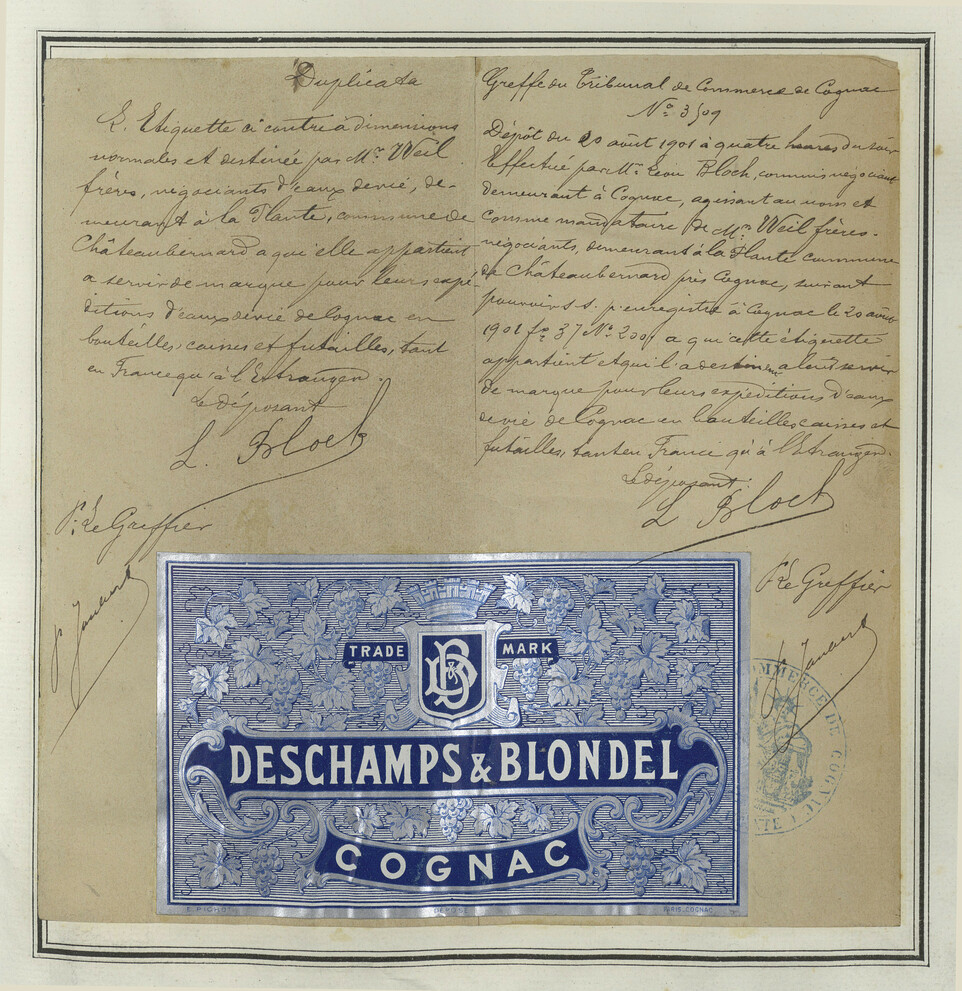 Duplicata
L'Etiquette ci contre à dimensions
normales et destinée par Mrs Weil
frères, négociants d'eaux de vie, de-
meurant à la Plante, commune de
Châteaubernard a qui elle appartient
a servir de marque pour leurs expé-
ditions d'eaux de vie de Cognac en
bouteilles, caisses et futailles, tant
en France qu'à l'Etranger.
Le déposant
L. Bloch
P. Le Greffier
Greffe du Tribunal de Commerce de Cognac
No. 3509
Dépôt du 20 août 1901 à quatre heures du soir
Effectué par Mr Léon Bloch, commis négociant
demeurant à Cognac, agissant au nom et
comme mandataire de Mrs Weil frères.
négociants, demeurant à la Plante commune
de Châteaubernard près Cognac, suivant
pouvoir s.s.p. enregistré à Cognac le 20 août
1901 fo 37 No. 200, a qui cette étiquette
appartient et qui l'a destinent a leur servir
de marque pour leurs expéditions d'eaux
de vie de Cognac en bouteilles caisses et
futailles, tant en France qu'à l'Etranger.
Le déposant
L Bloch
P. Le Greffier
TRADE MARK
D&B
DESCHAMPS & BLONDEL
COGNAC
E. PICHOT DÉPOSÉ PARIS. COGNAC
COMMERCE DE COGNAC